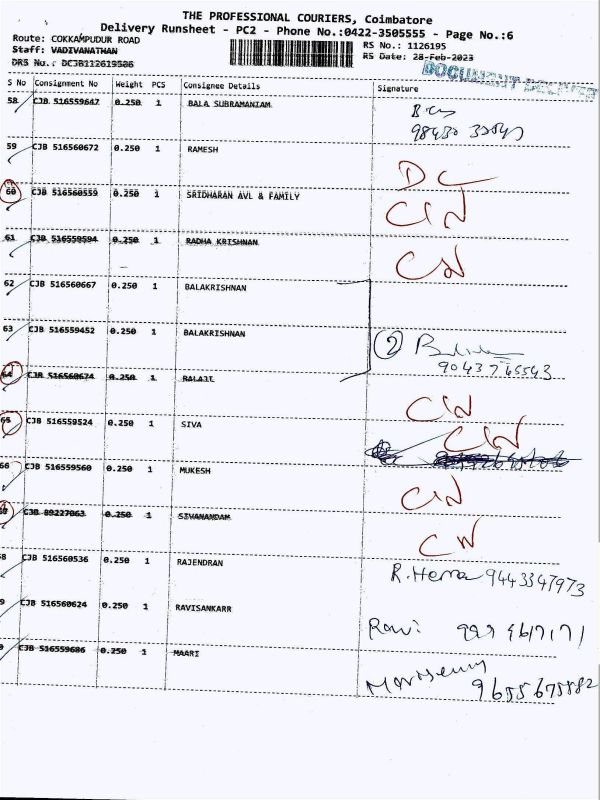 THE PROFESSIONAL COURIERS, Coimbatore
Delivery Runsheet - PC2 - Phone No.:0422-3505555 - Page No.:6
Route: COKKAMPUDUR ROAD
RS No.: 1126195
Staff: VADIVANATHAN
RS Date: 28-Feb-2023
DRS No.: DCJB112619586
DOCUMENT DELIVER
S No Consignment No Weight PCS Consignee Details Signature
58 CJB 516559647 0.250 1 BALA SUBRAMANIAM
59 CJB 516560672 0.250 1 RAMESH DC
60 CJB 516560559 0.250 1 SRIDHARAN AVL & FAMILY CIN
61 CJB 516559594 0.250 1 RADHA KRISHNAN CN
62 CJB 516560667 0.250 1 BALAKRISHNAN
63 CJB 516559452 0.250 1 BALAKRISHNAN 2
9043746543
64 CJB 516560674 0.250 1 BALAJI CIN
65 CJB 516559524 0.250 1 SIVA CIN
66 CJB 516559560 0.250 1 MUKESH CIN
CJB 89227063 0.250 1 SIVANANDAM CN
8 CJB 516560536 0.250 1 RAJENDRAN R.Hema 9443347973
9 CJB 516560624 0.250 1 RAVISANKARR Ravi
CJB 516559686 0.250 1 MAARI
9655675882